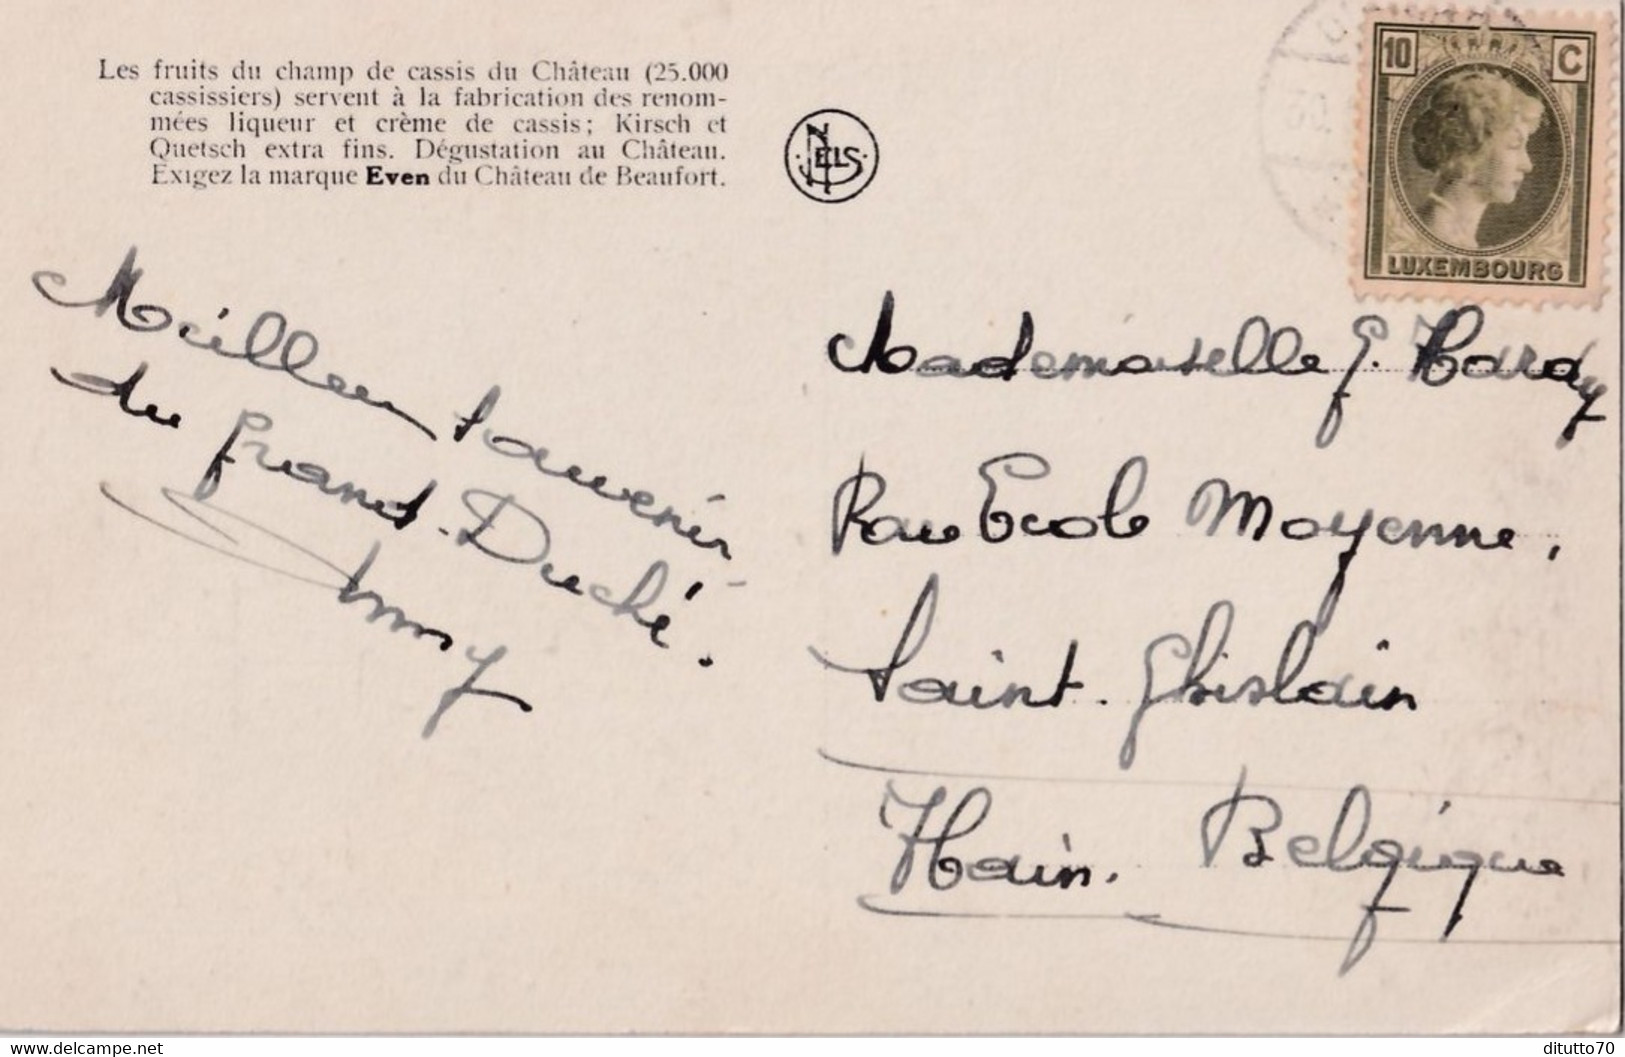 Les fruits du champ de cassis du Château (25.000
cassissiers) servent à la fabrication des renom-
mées liqueur et crème de cassis; Kirsch et
Quetsch extra fins. Dégustation au Château.
Exigez la marque Even du Château de Beaufort.
NELS
10 C
LUXEMBOURG
Meilleur souvenir
du grand-Duché.
Mademoiselle G. Hardy
Rue Ecole Moyenne,
Saint-Ghislain
Hain. Belgique
https://www.delcampe.net
ditutto70